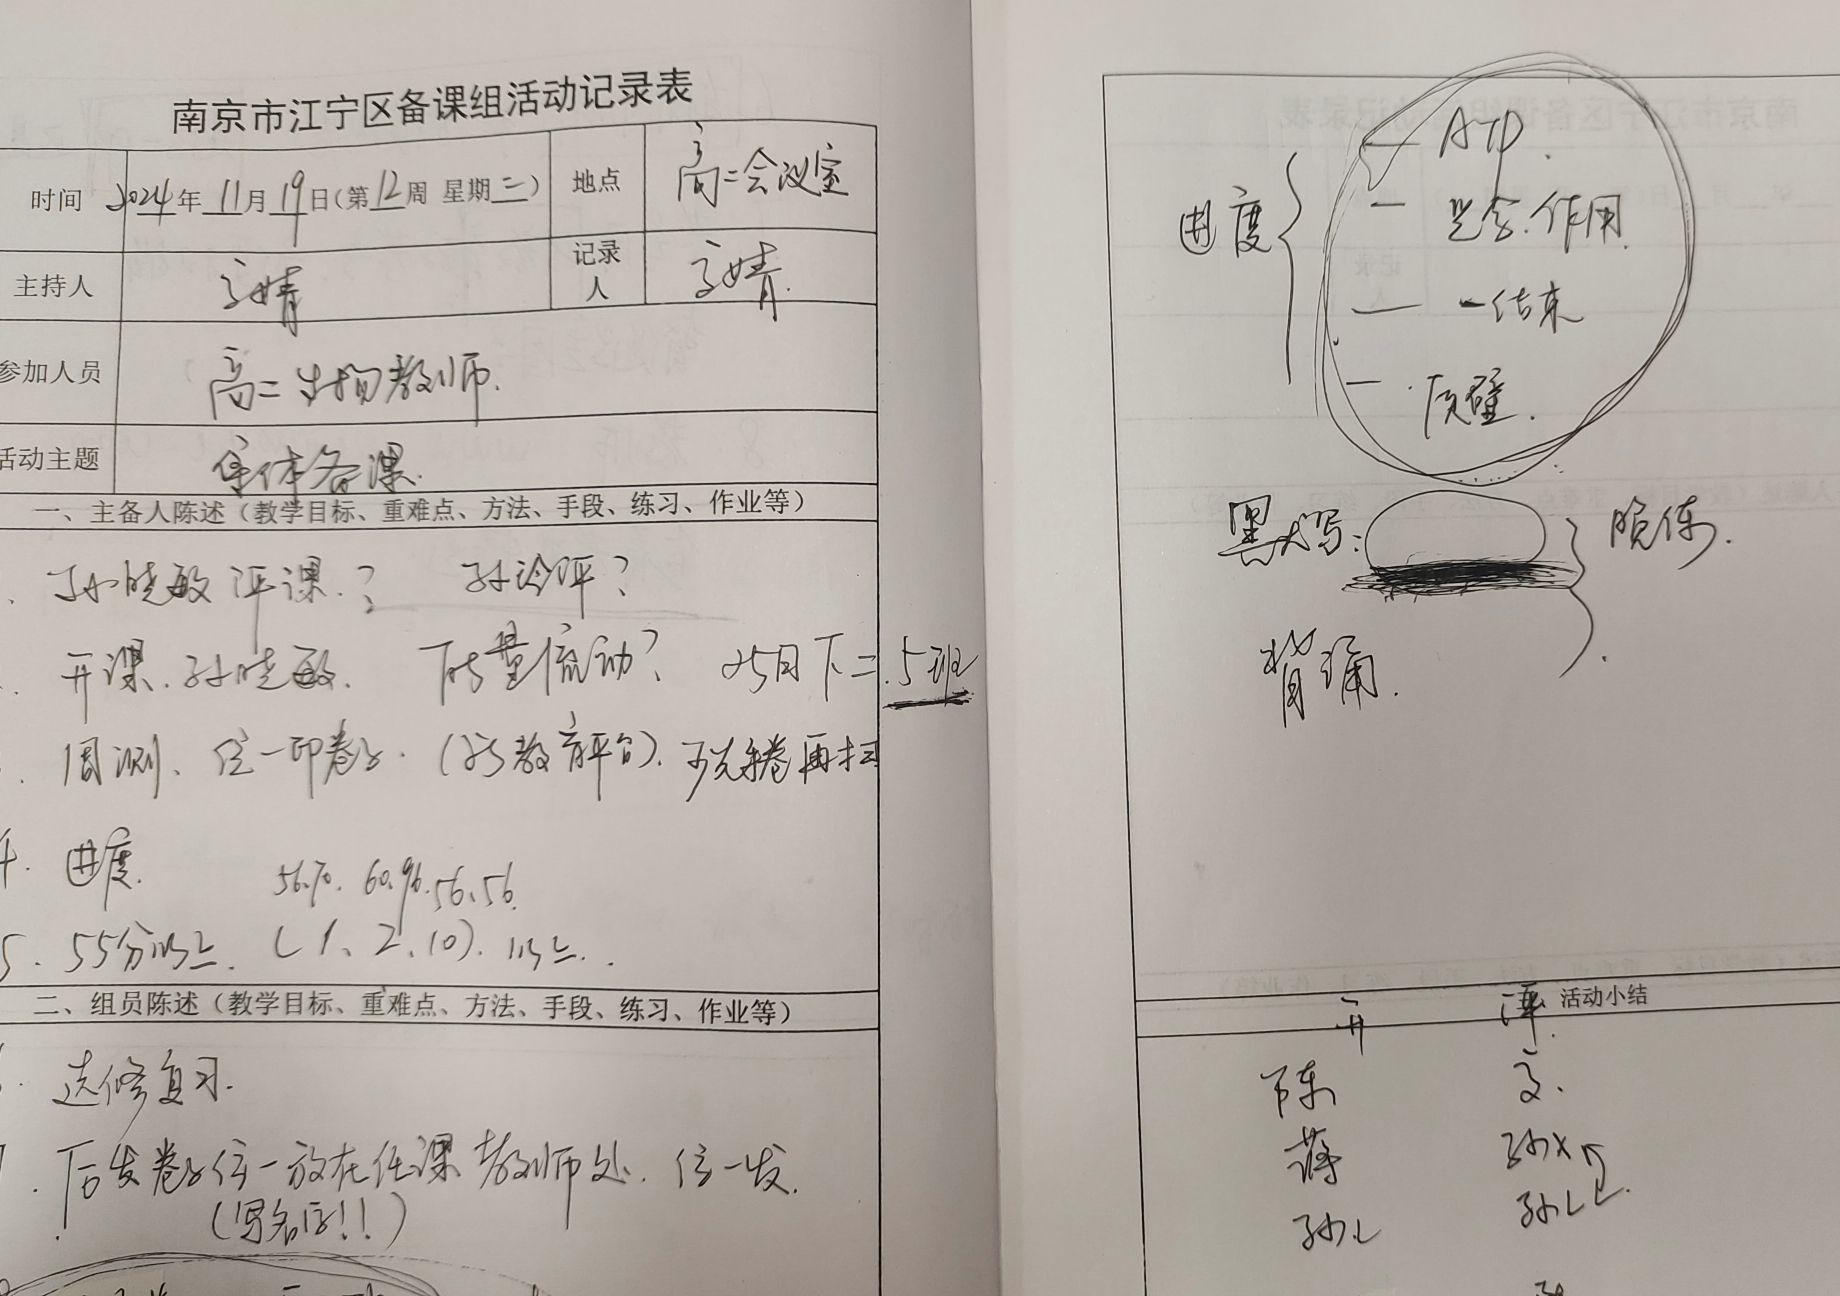 南京市江宁区备课组活动记录表
时间 2024年11月19日(第12周 星期二) 地点 高二会议室
主持人 婧 记录人 婧.
参加人员 高二生物教师.
活动主题 集体备课.
一、主备人陈述（教学目标、重难点、方法、手段、练习、作业等）
孙晓敏评课.? 孙 评?
开课.孙晓敏. 能量流动? 25日下二.5班
周测、统一印卷子.( 教育平台). 卷再扫
4. 进度. 56.70. 60.96.56.56.
5. 55分以上. (1、2、10). 以上..
二、组员陈述（教学目标、重难点、方法、手段、练习、作业等）
选修复习.
后发卷子统一放在任课教师处. 统一发.
(写名字!!)
进度
— ATP.
— 光合.作用.
— 一结束
— 质壁.
黑 写: 
背诵.
活动小结
开 评
陈
蒋 孙X
孙L 孙L